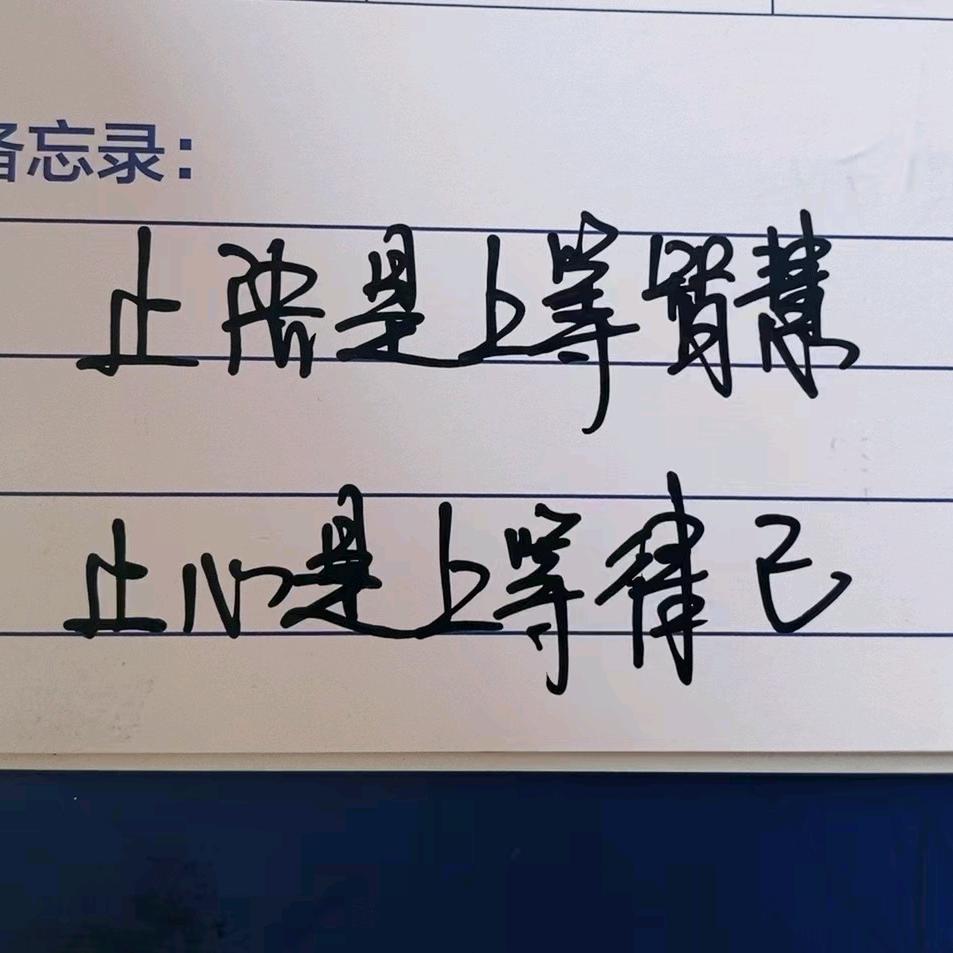 备忘录:
止语是上等智慧
止心是上等律己